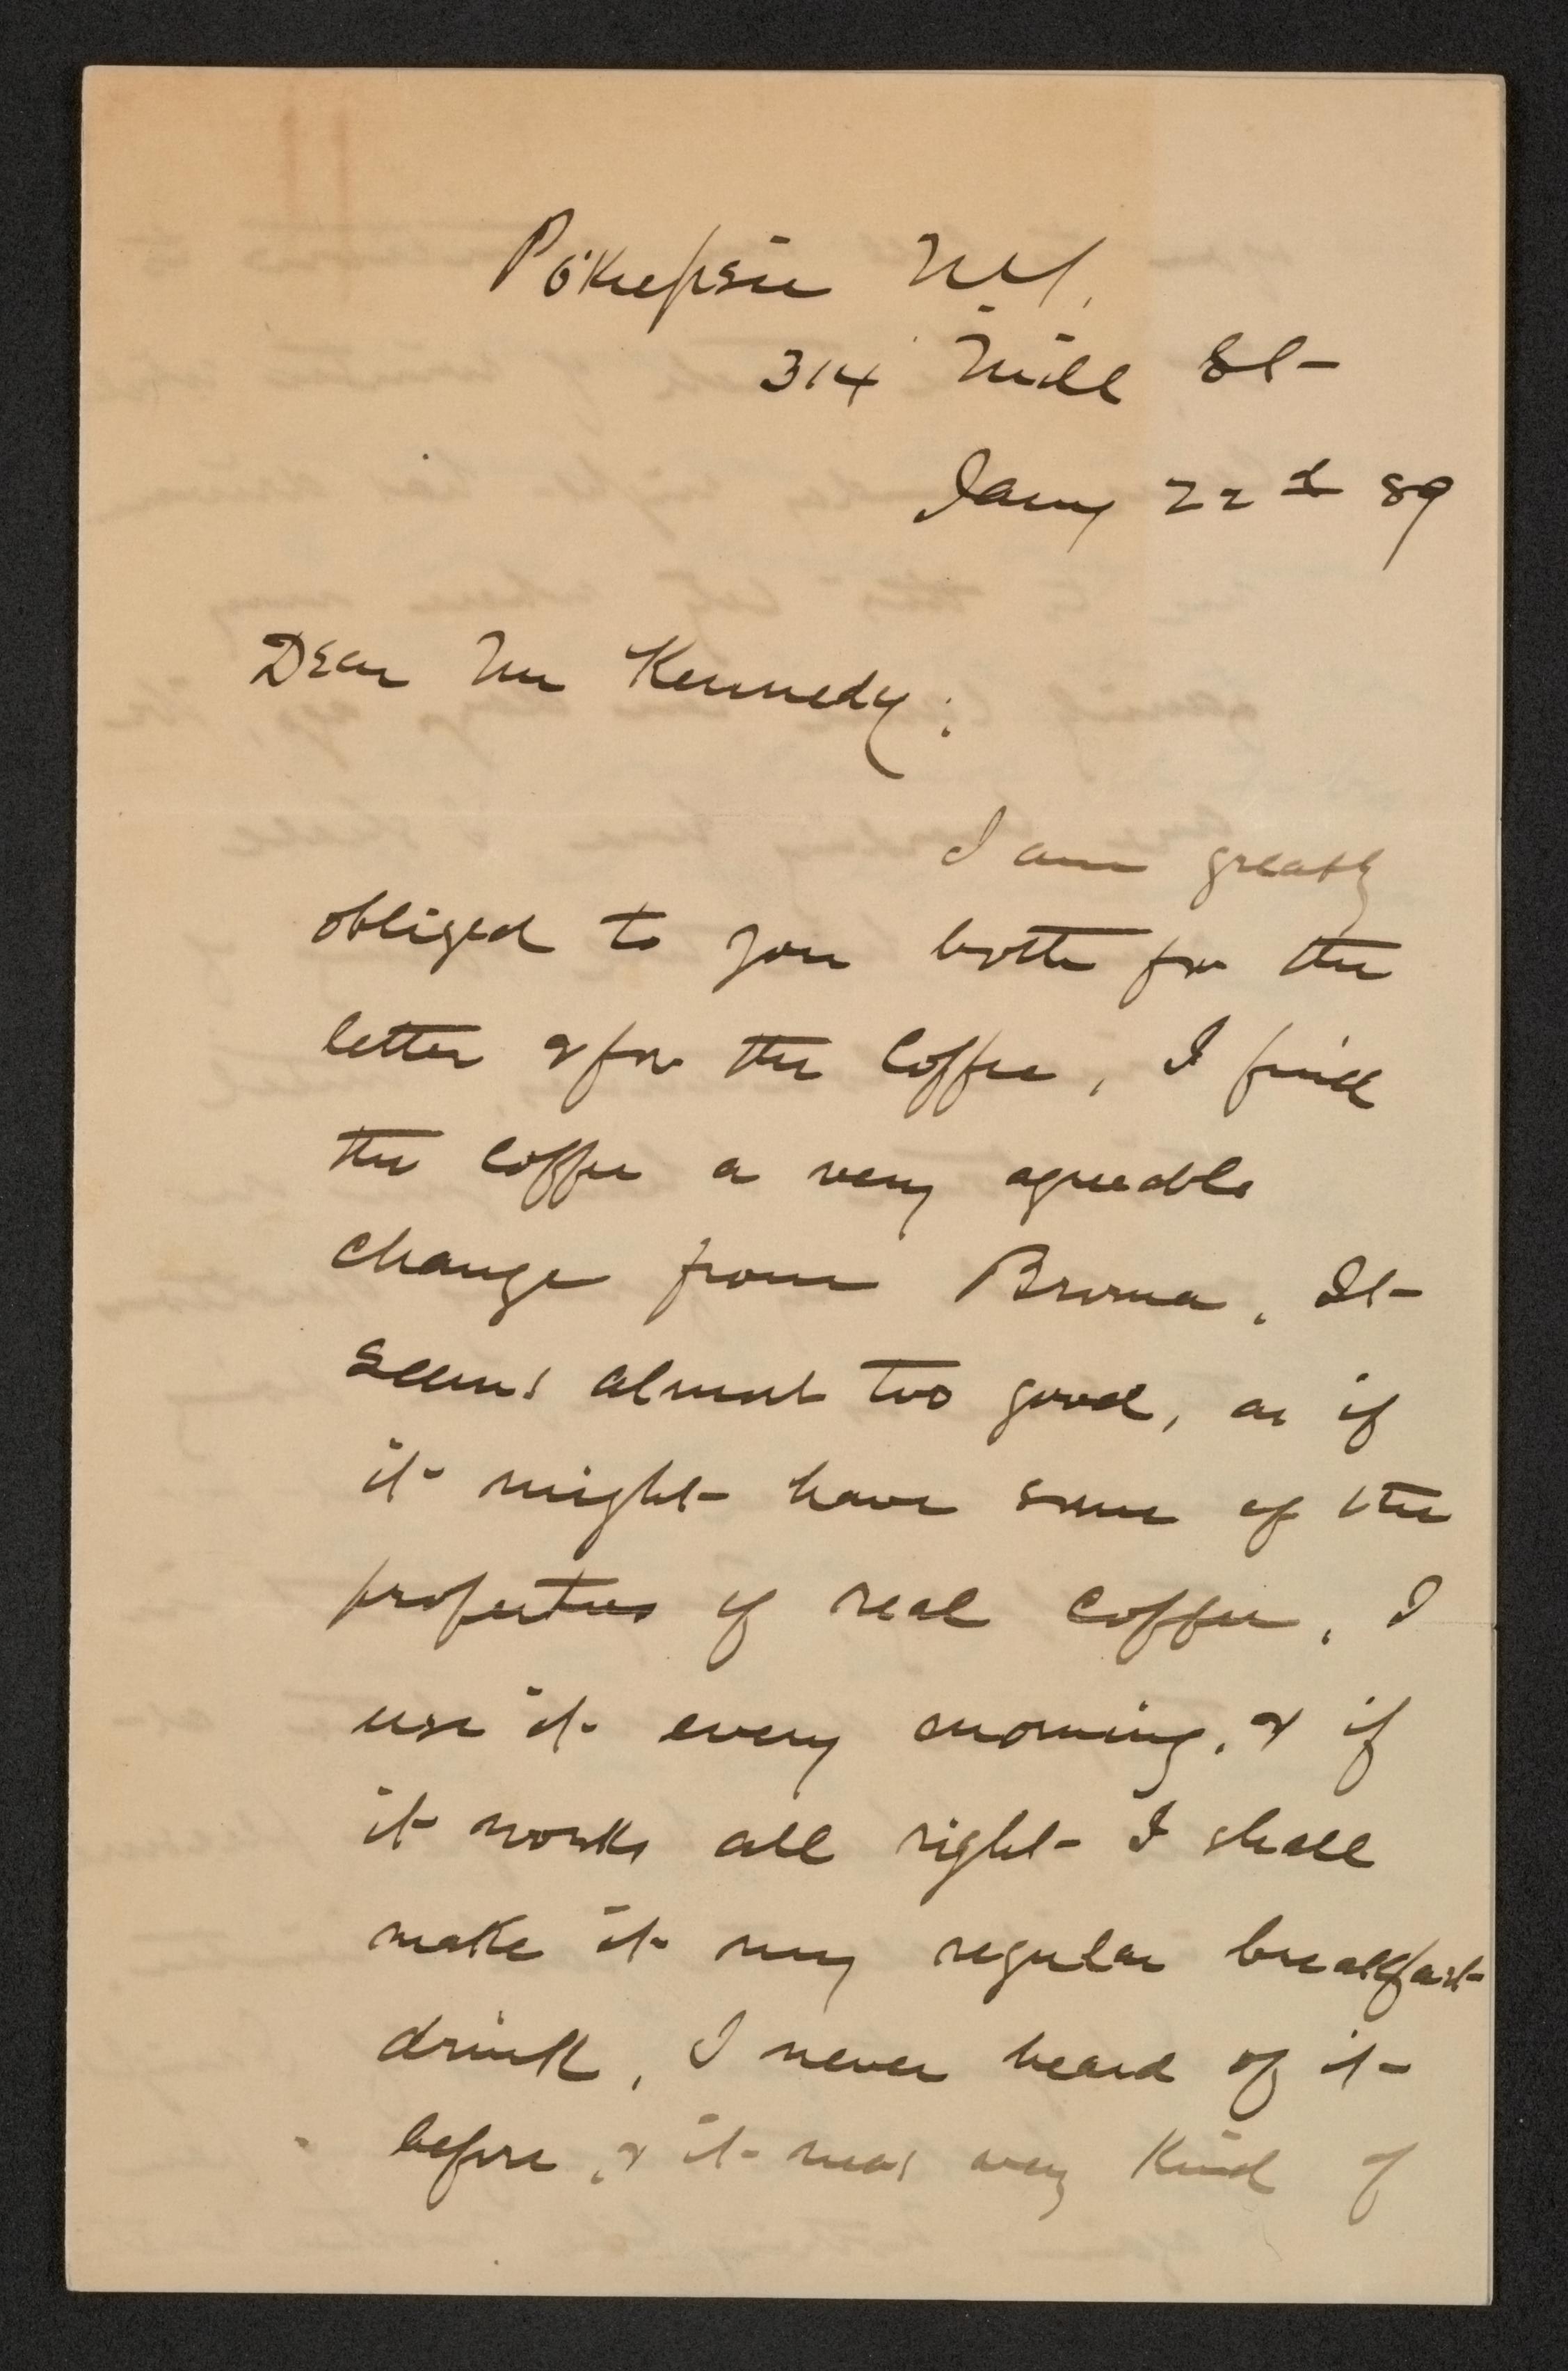 P'o'Keepsie N.Y.
314 Mill St-
Jany 22d 89
Dear Mr Kennedy:
I am greatly
obliged to you both for the
letter & for the Coffee, I find
the coffee a very agreeable
change from Broma. It
seems almost too good, as if
it might have some of the
properties of real coffee. I
use it every morning, & if
it works all right I shall
make it my regular breakfast
drink, I never heard of it
before, & it was very kind of